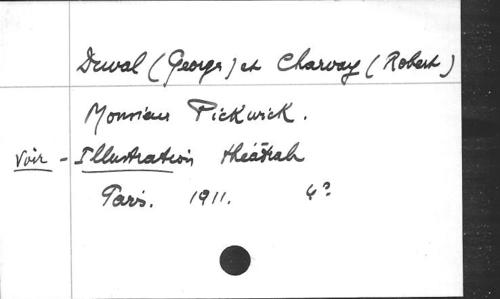 Duval (Georges) et Charvay (Robert)
Monsieur Pickwick.
Voir - Illustration théâtrale
Paris. 1911. 4º